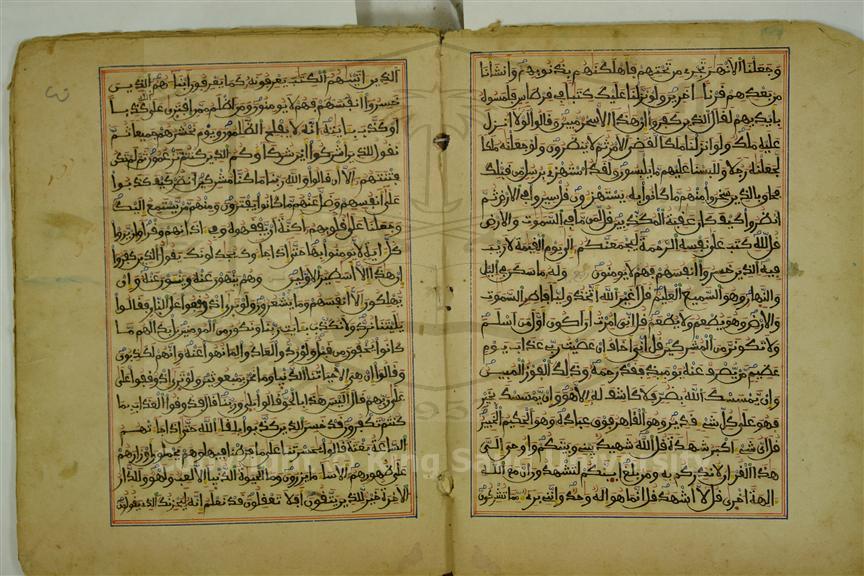 وجعلنا الأنهر تجرى من تحتهم فأهلكنهم بذنوبهم وأنشأنا
من بعدهم قرنا ءاخرين ولو نزلنا عليك كتبا فى قرطاس فلمسوه
بأيديهم لقال الذين كفروا إن هذا إلا سحر مبين وقالوا لولا أنزل
عليه ملك ولو أنزلنا ملكا لقضى الأمر ثم لا ينظرون ولو جعلنه ملكا
لجعلنه رجلا وللبسنا عليهم ما يلبسون ولقد استهزئ برسل من قبلك
فحاق بالذين سخروا منهم ما كانوا به يستهزءون قل سيروا فى الأرض ثم
انظروا كيف كان عقبة المكذبين قل لمن ما فى السموت والأرض
قل لله كتب على نفسه الرحمة ليجمعنكم إلى يوم القيمة لا ريب
فيه الذين خسروا أنفسهم فهم لا يومنون وله ما سكن فى اليل
والنهار وهو السميع العليم قل أغير الله أتخذ وليا فاطر السموت
والأرض وهو يطعم ولا يطعم قل إنى أمرت أن أكون أول من أسلم
ولا تكونن من المشركين قل إنى أخاف إن عصيت ربى عذاب يوم
عظيم من يصرف عنه يومئذ فقد رحمه وذلك الفوز المبين
وإن يمسسك الله بضر فلا كاشف له إلا هو وإن يمسسك بخير
فهو على كل شىء قدير وهو القاهر فوق عباده وهو الحكيم الخبير
قل أى شىء أكبر شهدة قل الله شهيد بينى وبينكم وأوحى إلى
هذا القرءان لأنذركم به ومن بلغ أينكم لتشهدون أن مع الله
ءالهة أخرى قل لا أشهد قل إنما هو إله وحد وإننى برىء مما تشركون
الذين ءاتينهم الكتب يعرفونه كما يعرفون أبناءهم الذين
خسروا أنفسهم فهم لا يومنون ومن أظلم ممن افترى على الله كذبا
أو كذب بئايته إنه لا يفلح الظلمون ويوم نحشرهم جميعا ثم
نقول للذين أشركوا أين شركاؤكم الذين كنتم تزعمون ثم لم تكن
فتنتهم إلا أن قالوا والله ربنا ما كنا مشركين انظر كيف كذبوا
على أنفسهم وضل عنهم ما كانوا يفترون ومنهم من يستمع إليك
وجعلنا على قلوبهم أكنة أن يفقهوه وفى ءاذانهم وقرا وإن يروا
كل ءاية لا يومنوا بها حتى إذا جاءوك يجدلونك يقول الذين كفروا
إن هذا إلا أسطير الأولين وهم ينهون عنه وينئون عنه وإن
يهلكون إلا أنفسهم وما يشعرون ولو ترى إذ وقفوا على النار فقالوا
يليتنا نرد ولا نكذب بئايت ربنا ونكون من المومنين بل بدا لهم ما
كانوا يخفون من قبل ولو ردوا لعادوا لما نهوا عنه وإنهم لكذبون
وقالوا إن هى إلا حياتنا الدنيا وما نحن بمبعوثين ولو ترى إذ وقفوا على
على ربهم قال أليس هذا بالحق قالوا بلى وربنا قال فذوقوا العذاب بما
كنتم تكفرون قد خسر الذين كذبوا بلقاء الله حتى إذا جاءتهم
الساعة بغتة قالوا يحسرتنا على ما فرطنا فيها وهم يحملون أوزارهم
على ظهورهم ألا ساء ما يزرون وما الحيوة الدنيا إلا لعب ولهو وللدار
الأخرة خير للذين يتقون أفلا تعقلون قد نعلم إنه ليحزنك الذى يقولون